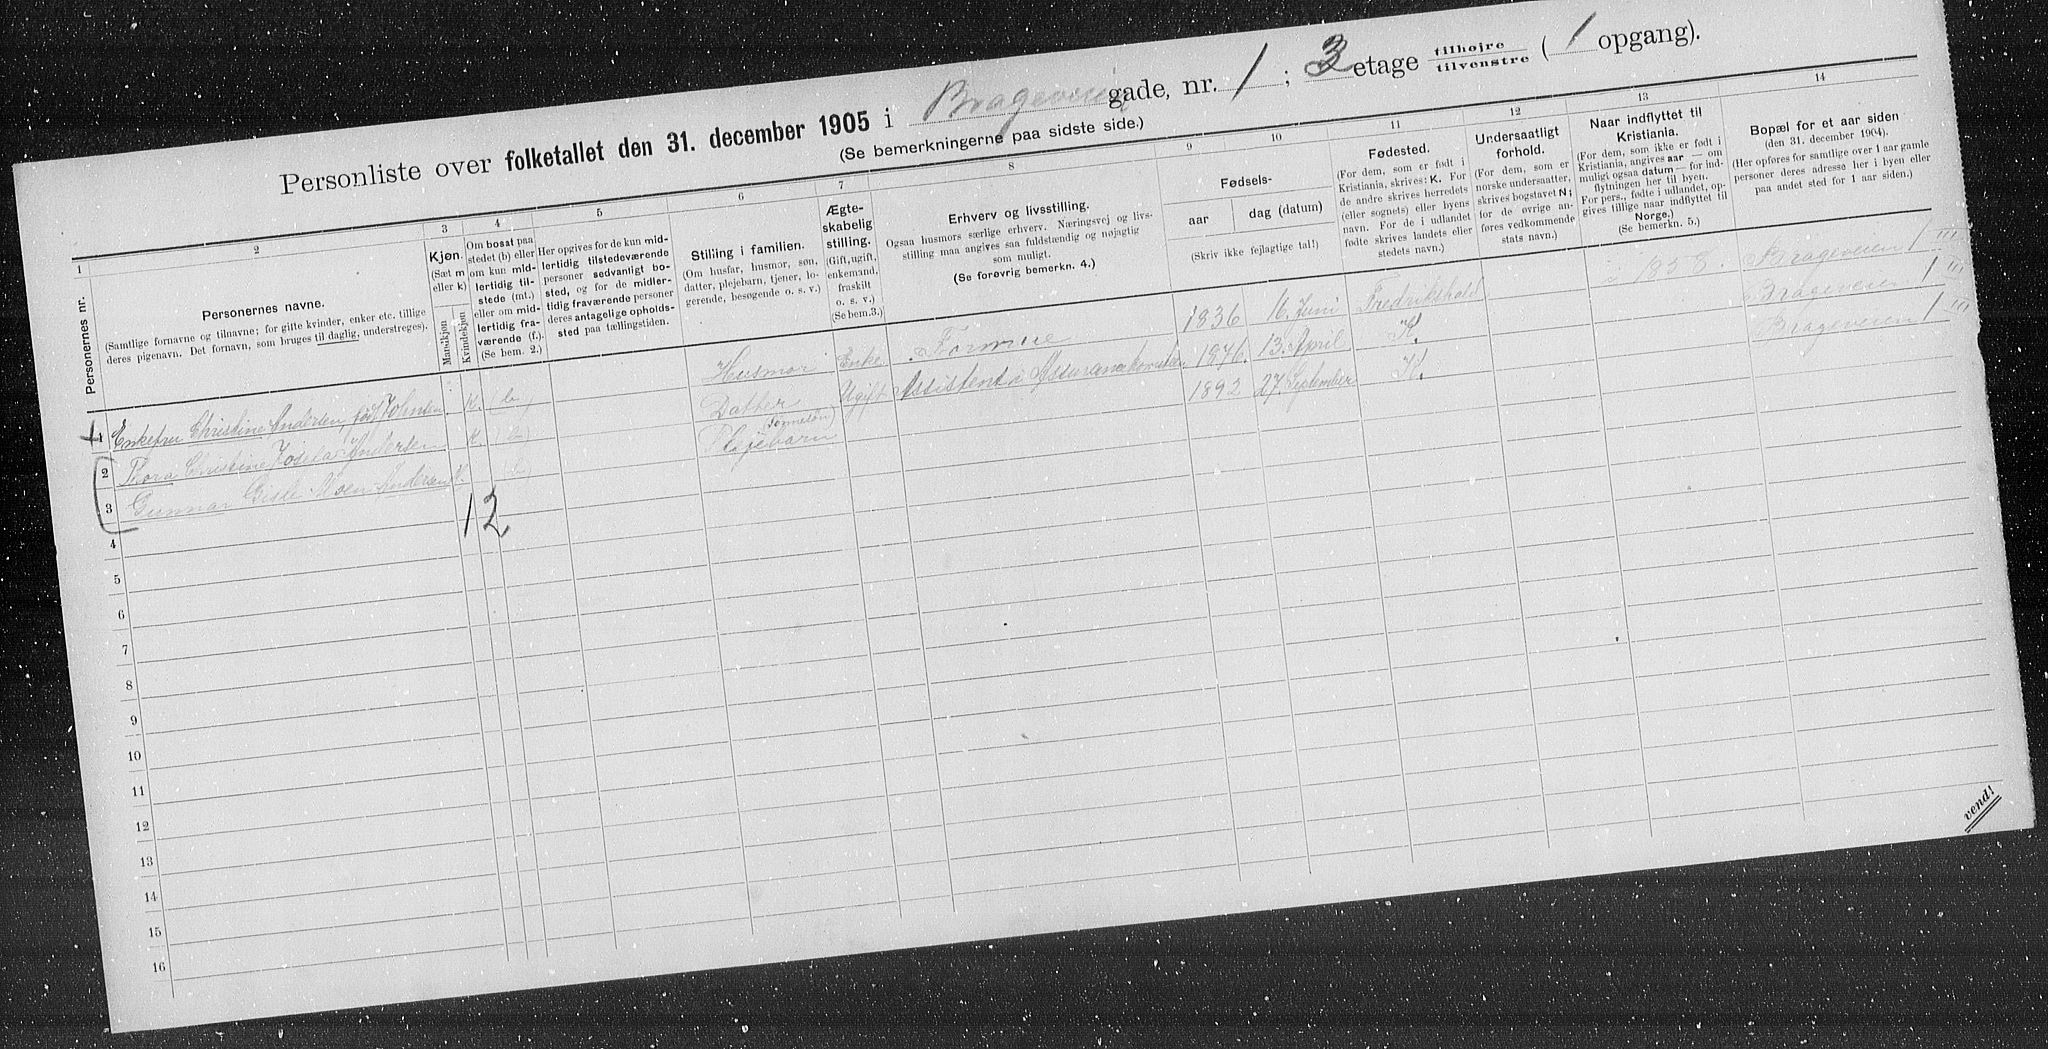 Personliste over folketallet den 31. december 1905 i Brageveien gade, nr. 1 ; 3 etage tilhøjre tilvenstre ( 1 opgang).
(Se bemerkningerne paa sidste side.)
1 2 3 4 5 6 7 8 9 10 11 12 13 14
Personernes nr.
Personernes navne.
(Samtlige fornavne og tilnavne; for gifte kvinder, enker etc. tillige
deres pigenavn. Det fornavn, som bruges til daglig, understreges).
Kjøn.
(Sæt m
eller k)
Mandkjøn
Kvindekjøn
Om bosat paa
stedet (b) eller
om kun mid-
lertidig til-
stede (mt.)
eller om mid-
lertidig fra-
værende (f.).
(Se bem. 2.)
Her opgives for de kun mid-
lertidig tilstedeværende
personer sedvanligt bo-
sted, og for de midler-
tidig fraværende personer
deres antagelige opholds-
sted paa tællingstiden.
Stilling i familien.
(Om husfar, husmor, søn,
datter, plejebarn, tjener, lo-
gerende, besøgende o. s. v.)
Ægte-
skabelig
stilling.
(Gift, ugift,
enkemand,
fraskilt
o. s. v.)
(Se bem.3.)
Erhverv og livsstilling.
Ogsaa husmors særlige erhverv. Næringsvej og livs-
stilling maa angives saa fuldstændig og nøjagtig
som muligt.
(Se forøvrig bemerkn. 4.)
Fødsels-
aar
dag (datum)
(Skriv ikke fejlagtige tal!)
Fødested.
(For dem, som er født i
Kristiania, skrives: K. For
de andre skrives herredets
(eller sognets) eller byens
navn. For de i udlandet
fødte skrives landets eller
stedets navn.)
Undersaatligt
forhold.
(For dem, som er
norske undersaatter,
skrives bogstavet N;
for de øvrige an-
føres vedkommende
stats navn.)
Naar indflyttet til
Kristiania.
(For dem, som ikke er født i
Kristiania, angives aar — om
muligt ogsaa datum — for ind-
flytningen her til byen.
For pers., fødte i udlandet, op-
gives tillige naar indflyttet til
Norge.)
(Se bemerkn. 5.)
Bopæl for et aar siden
(den 31. december 1904).
(Her opføres for samtlige over 1 aar gamle
personer deres adresse her i byen eller
paa andet sted for 1 aar siden.)
1 Enkefru Christine Andersen født Johnsen. K. (b) Husmor Enke Formue 1836 16 Juni Fredrikshald i 1858. Brageveien 1 III
2 Thora Christine Josefa Andersen K. (b) Datter Ugift Assistent i Assurance 1876. 13. April K. Brageveien 1 III
3 Gunnar Gisle Moen Andersen M. (b) Plejebarn (Sønnesøn) 1892 27. September K. Brageveien 1 III
1 2
4
5
6
7
8
9
10
11
12
13
14
15
16
vend!